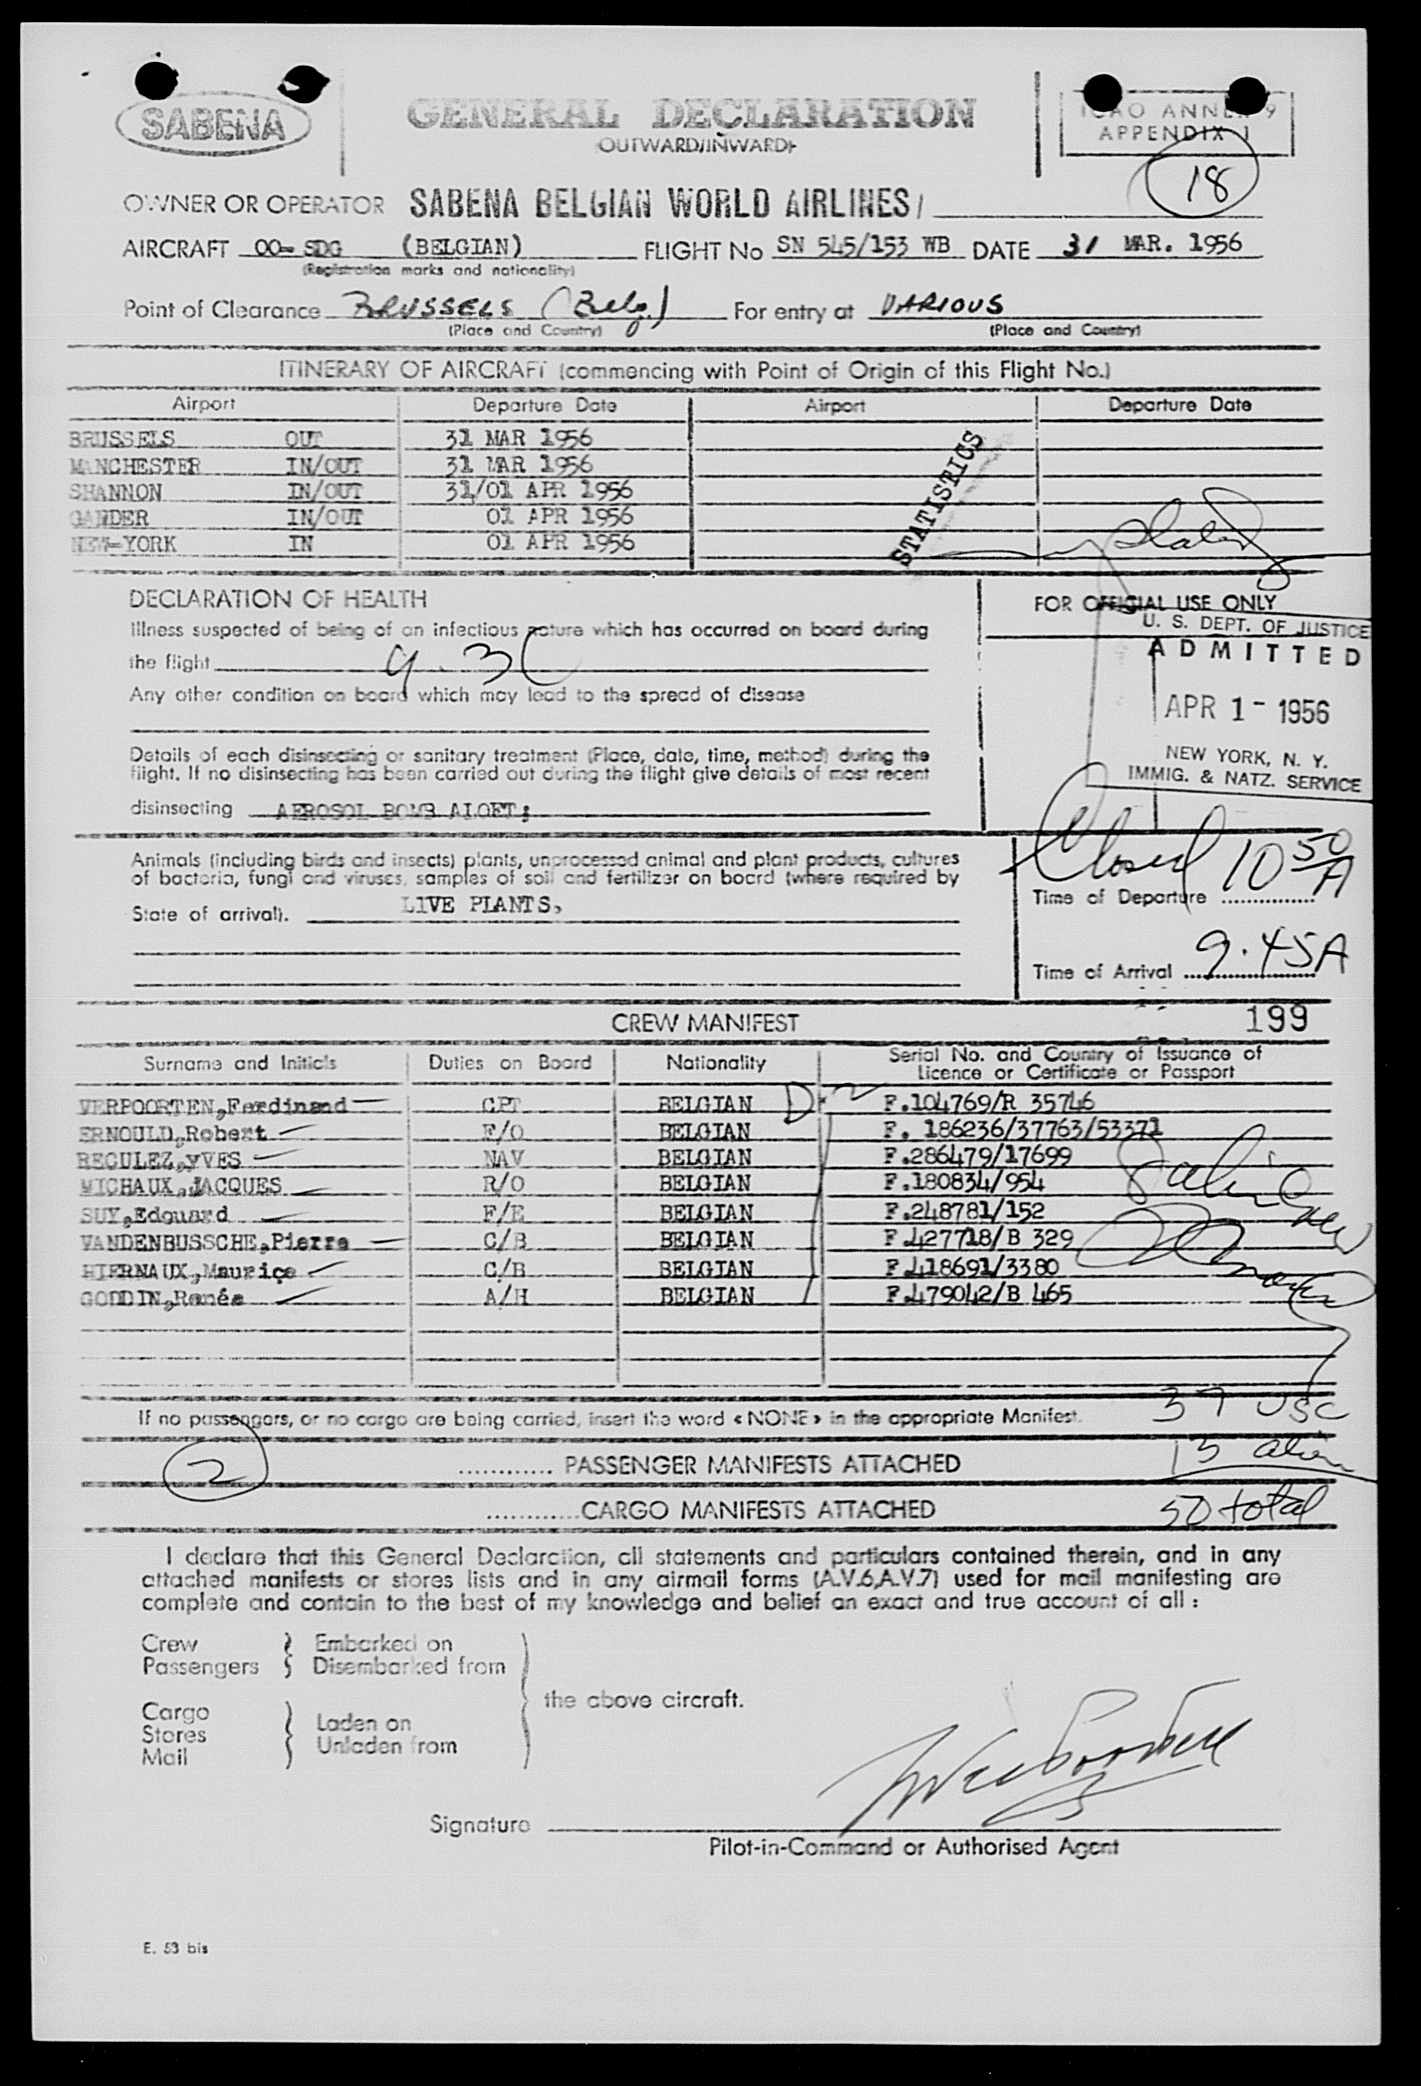 SABENA
GENERAL DECLARATION
OUTWARD/INWARD
ICAO ANNEX 9
APPENDIX 1
18
OWNER OR OPERATOR SABENA BELGIAN WORLD AIRLINES/
AIRCRAFT OO-SDG (BELGIAN) FLIGHT No SN 545/153 WB DATE 31 MAR. 1956
(Registration marks and nationality)
Point of Clearance BRUSSELS (Belg.) For entry at VARIOUS
(Place and Country) (Place and Country)
ITINERARY OF AIRCRAFT (commencing with Point of Origin of this Flight No.)
Airport Departure Date Airport Departure Date
BRUSSELS OUT 31 MAR 1956
MANCHESTER IN/OUT 31 MAR 1956
SHANNON IN/OUT 31/01 APR 1956
GANDER IN/OUT 01 APR 1956
NEW-YORK IN 01 APR 1956
STATISTICS
DECLARATION OF HEALTH
Illness suspected of being of an infectious nature which has occurred on board during
the flight
Any other condition on board which may lead to the spread of disease
Details of each disinsecting or sanitary treatment (Place, date, time, method) during the
flight. If no disinsecting has been carried out during the flight give details of most recent
disinsecting AEROSOL BOMB ALOET;
FOR OFFICIAL USE ONLY
U. S. DEPT. OF JUSTICE
ADMITTED
APR 1 - 1956
NEW YORK, N. Y.
IMMIG. & NATZ. SERVICE
Animals (including birds and insects) plants, unprocessed animal and plant products, cultures
of bacteria, fungi and viruses, samples of soil and fertilizer on board (where required by
State of arrival). LIVE PLANTS,
Closed 10 50 A
Time of Departure
Time of Arrival 9.45A
CREW MANIFEST 199
Surname and Initials Duties on Board Nationality Serial No. and Country of Issuance of
Licence or Certificate or Passport
VERPOORTEN,Ferdinand CPT BELGIAN F.104769/R 35746
ERNOULD,Robert F/O BELGIAN F. 186236/37763/53371
RECULEZ,YVES NAV BELGIAN F.286479/17699
MICHAUX,JACQUES R/O BELGIAN F.180834/954
SUY,Edouard F/E BELGIAN F.248781/152
VANDENBUSSCHE,Pierre C/B BELGIAN F.427718/B 329
HIERNAUX,Maurice C/B BELGIAN F.418691/3380
GODDIN,Renée A/H BELGIAN F.479042/B 465
If no passengers, or no cargo are being carried, insert the word « NONE » in the appropriate Manifest.
37 USC
2 ............ PASSENGER MANIFESTS ATTACHED 13 alien
............CARGO MANIFESTS ATTACHED 50 total
I declare that this General Declaration, all statements and particulars contained therein, and in any
attached manifests or stores lists and in any airmail forms (A.V.6,A.V.7) used for mail manifesting are
complete and contain to the best of my knowledge and belief an exact and true account of all :
Crew Embarked on
Passengers Disembarked from
the above aircraft.
Cargo
Stores Laden on
Mail Unladen from
Signature
Pilot-in-Command or Authorised Agent
E. 53 bis